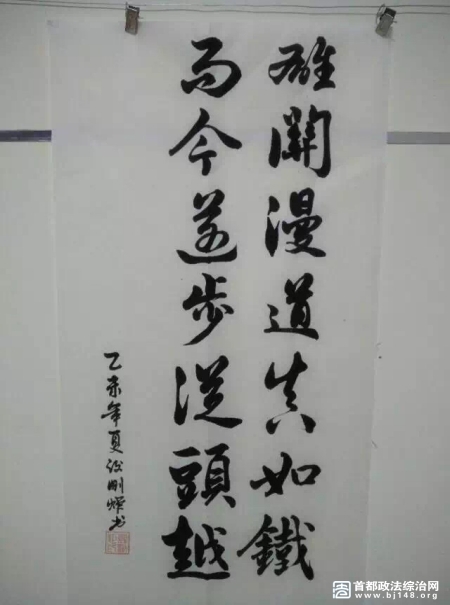 雄關漫道真如鐵
而今邁步從頭越
乙未年夏
首都政法综治网
www.bj148.org